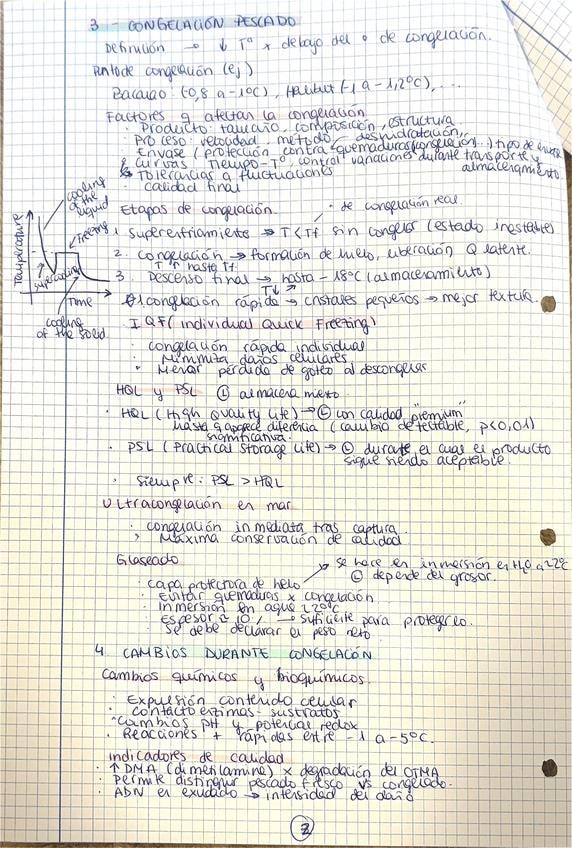 3 - CONGELACIÓN PESCADO
Definición → ↓ Tª x debajo del º de congelación.
Punto de congelación (ej)
Bacalao (-0,8 a -1ºC), Halibut (-1 a -1,2ºC), ...
Factores q afectan la congelación
· Producto: tamaño, composición, estructura
· Proceso: velocidad, método, deshidratación,
· Envase (protección contra quemaduras congelación...) tipo de
· Curvas Tiempo-Tª, control variaciones durante transporte y
almacenamiento
· Tolerancias a fluctuaciones
· calidad final
Etapas de congelación.
· de congelación real.
1. Superenfriamiento → T < Tf sin congelar (estado inestable)
2. congelación → formación de hielo, liberación Q latente.
T ↑ hasta Tf.
3. Descenso final → hasta -18ºC (almacenamiento)
T↓
congelación rápida → cristales pequeños → mejor textura.
cooling of the liquid
freezing
supercooling
Temperature
Time
cooling of the solid
IQF (individual Quick Freezing)
· congelación rápida individual
· Minimiza daños celulares
· Menor pérdida de goteo al descongelar
HQL y PSL almacenamiento
· HQL (High Quality Life) → con calidad "premium"
hasta q aparece diferencia (cambio detectable, p<0,01)
significativa.
· PSL (Practical Storage Life) → durante el cual el producto
sigue siendo aceptable.
· Siempre: PSL > HQL
Ultracongelación en mar
· congelación inmediata tras captura.
· Máxima conservación de calidad
Glaseado
→ se hace en inmersión en H₂O a ≈2ºC
depende del grosor.
· capa protectora de hielo
· Evitar quemaduras x congelación
· Inmersión en agua ≤2ºC
· Espesor ≈ 10% → suficiente para protegerlo.
· Se debe declarar el peso neto
4. CAMBIOS DURANTE CONGELACIÓN
Cambios químicos y bioquímicos.
· Expulsión contenido celular
· contacto enzimas-sustratos
· cambios pH y potencial redox
· Reacciones + rápidas entre -1 a -5ºC.
indicadores de calidad
· ↑ DMA (dimetilamina) x degradación del OTMA
· Permite distinguir pescado fresco vs congelado.
· ADN en exudado → intensidad del daño
2